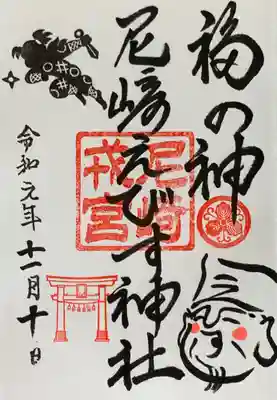 福の神
尼崎えびす神社
令和元年十一月十日
尼崎
戎宮